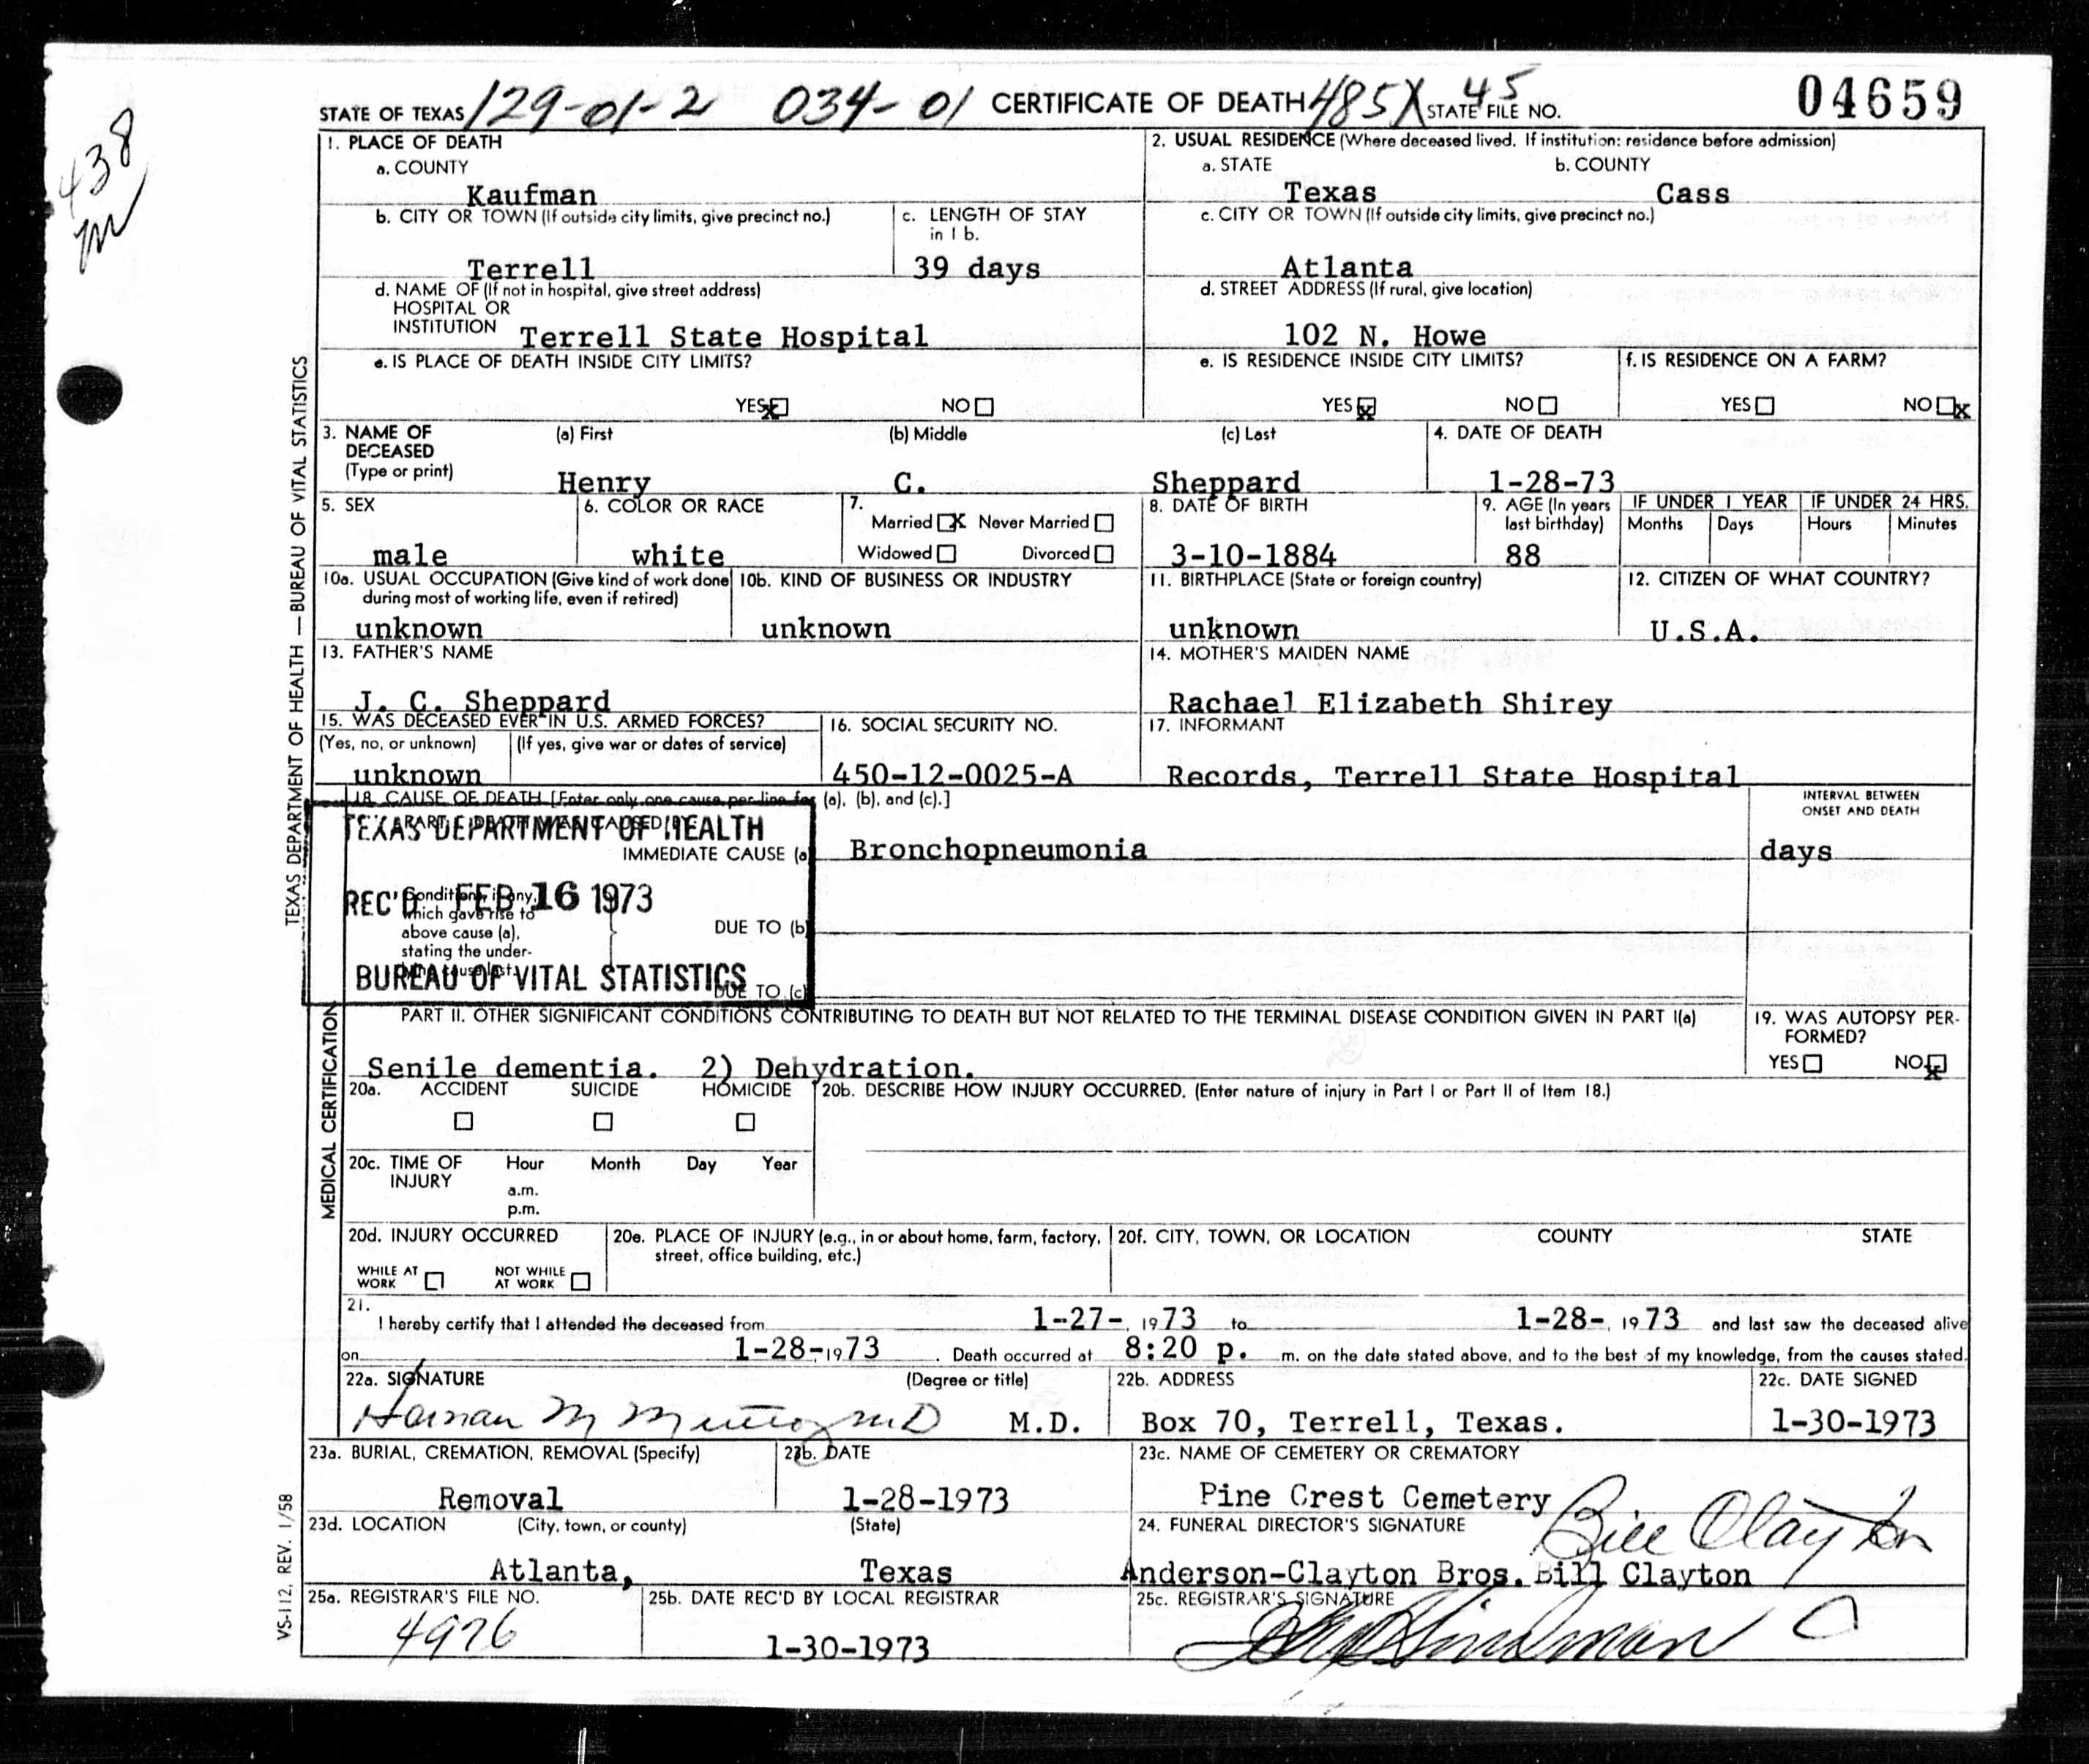 438
m
STATE OF TEXAS 129-01-2 034-01 CERTIFICATE OF DEATH 485X 45 STATE FILE NO. 04659
1. PLACE OF DEATH
a. COUNTY
Kaufman
2. USUAL RESIDENCE (Where deceased lived. If institution: residence before admission)
a. STATE b. COUNTY
Texas Cass
b. CITY OR TOWN (If outside city limits, give precinct no.)
Terrell
c. LENGTH OF STAY
in 1 b.
39 days
c. CITY OR TOWN (If outside city limits, give precinct no.)
Atlanta
d. NAME OF (If not in hospital, give street address)
HOSPITAL OR
INSTITUTION Terrell State Hospital
d. STREET ADDRESS (If rural, give location)
102 N. Howe
e. IS PLACE OF DEATH INSIDE CITY LIMITS?
YES X NO
e. IS RESIDENCE INSIDE CITY LIMITS?
YES X NO
f. IS RESIDENCE ON A FARM?
YES NO X
3. NAME OF
DECEASED
(Type or print)
(a) First (b) Middle (c) Last
Henry C. Sheppard
4. DATE OF DEATH
1-28-73
5. SEX
male
6. COLOR OR RACE
white
7.
Married X Never Married
Widowed Divorced
8. DATE OF BIRTH
3-10-1884
9. AGE (In years
last birthday)
88
IF UNDER 1 YEAR
Months Days
IF UNDER 24 HRS.
Hours Minutes
10a. USUAL OCCUPATION (Give kind of work done
during most of working life, even if retired)
unknown
10b. KIND OF BUSINESS OR INDUSTRY
unknown
11. BIRTHPLACE (State or foreign country)
unknown
12. CITIZEN OF WHAT COUNTRY?
U.S.A.
13. FATHER'S NAME
J. C. Sheppard
14. MOTHER'S MAIDEN NAME
Rachael Elizabeth Shirey
15. WAS DECEASED EVER IN U.S. ARMED FORCES?
(Yes, no, or unknown) (If yes, give war or dates of service)
unknown
16. SOCIAL SECURITY NO.
450-12-0025-A
17. INFORMANT
Records, Terrell State Hospital
18. CAUSE OF DEATH [Enter only one cause per line for (a), (b), and (c).]
INTERVAL BETWEEN
ONSET AND DEATH
TEXAS DEPARTMENT OF HEALTH
REC'D FEB 16 1973
BUREAU OF VITAL STATISTICS
IMMEDIATE CAUSE (a) Bronchopneumonia days
Conditions, if any,
which gave rise to
above cause (a),
stating the under-
lying cause last.
DUE TO (b)
DUE TO (c)
PART II. OTHER SIGNIFICANT CONDITIONS CONTRIBUTING TO DEATH BUT NOT RELATED TO THE TERMINAL DISEASE CONDITION GIVEN IN PART I(a)
Senile dementia. 2) Dehydration.
19. WAS AUTOPSY PER-
FORMED?
YES NO X
20a. ACCIDENT SUICIDE HOMICIDE
20b. DESCRIBE HOW INJURY OCCURRED. (Enter nature of injury in Part I or Part II of Item 18.)
20c. TIME OF
INJURY
Hour Month Day Year
a.m.
p.m.
20d. INJURY OCCURRED
WHILE AT
WORK
NOT WHILE
AT WORK
20e. PLACE OF INJURY (e.g., in or about home, farm, factory,
street, office building, etc.)
20f. CITY, TOWN, OR LOCATION COUNTY STATE
21.
I hereby certify that I attended the deceased from 1-27-, 1973 to 1-28-, 1973 and last saw the deceased alive
on 1-28-, 1973. Death occurred at 8:20 p. m. on the date stated above, and to the best of my knowledge, from the causes stated.
22a. SIGNATURE (Degree or title)
M.D.
22b. ADDRESS
Box 70, Terrell, Texas.
22c. DATE SIGNED
1-30-1973
23a. BURIAL, CREMATION, REMOVAL (Specify)
Removal
23b. DATE
1-28-1973
23c. NAME OF CEMETERY OR CREMATORY
Pine Crest Cemetery
23d. LOCATION (City, town, or county) (State)
Atlanta, Texas
24. FUNERAL DIRECTOR'S SIGNATURE
Bill Clayton
Anderson-Clayton Bros. Bill Clayton
25a. REGISTRAR'S FILE NO.
4976
25b. DATE REC'D BY LOCAL REGISTRAR
1-30-1973
25c. REGISTRAR'S SIGNATURE
TEXAS DEPARTMENT OF HEALTH — BUREAU OF VITAL STATISTICS
MEDICAL CERTIFICATION
VS-112, REV. 1/58